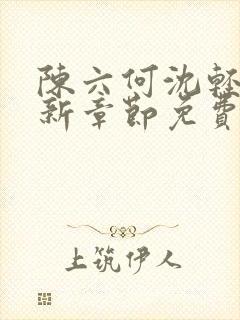 陳六何沈輕
新章節免費
上筑伊人